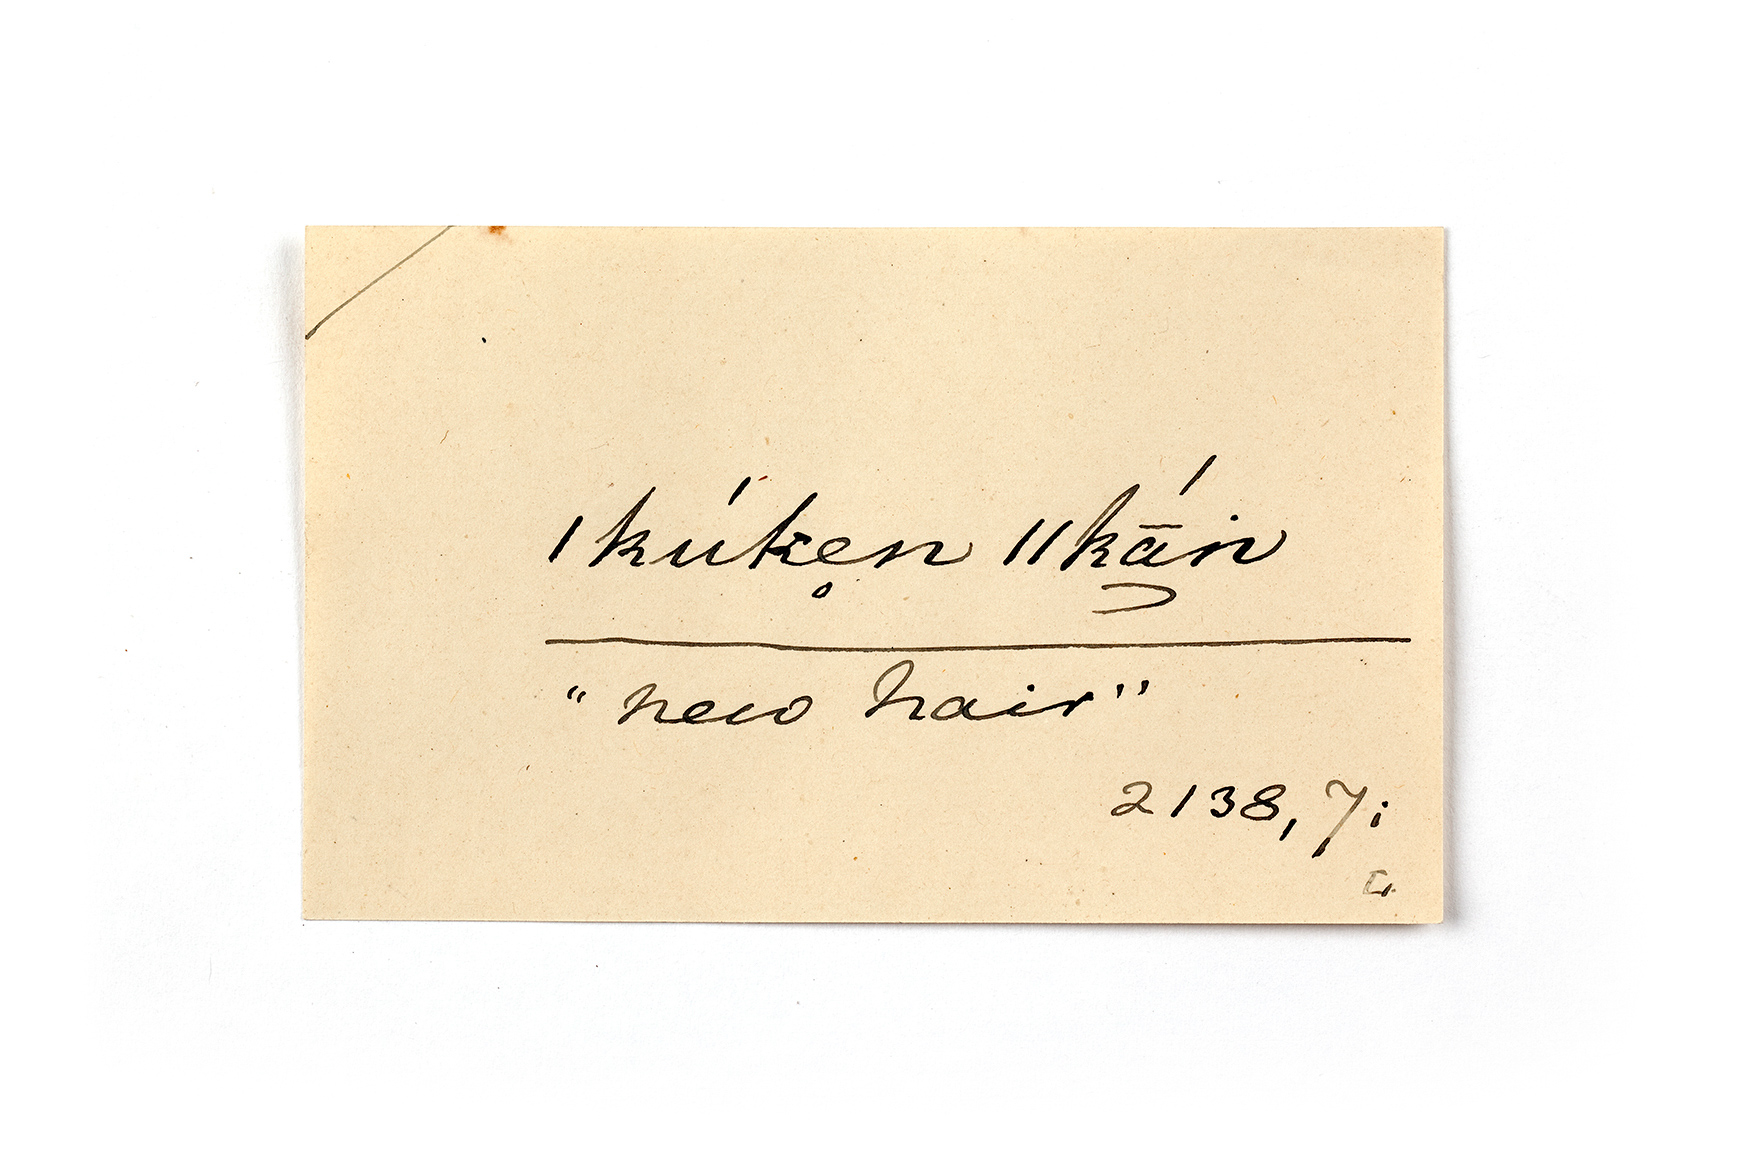 ǀkúken̥ ǁkā́ṅ
"new hair"
2138, 7;
L.